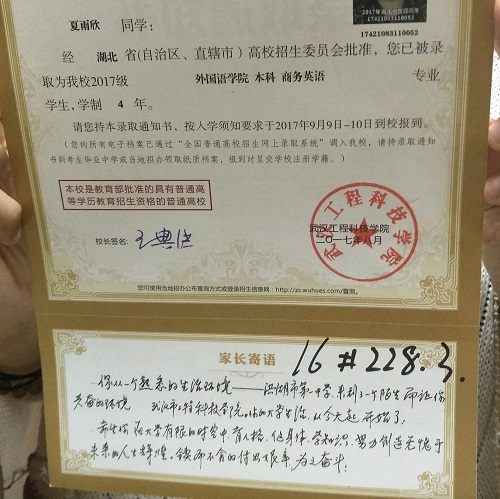 2017年湖北省普通高考
17421083110052
夏雨欣 同学：
17421083110052
经 湖北 省(自治区、直辖市）高校招生委员会批准，您已被录
取为我校2017级 外国语学院 本科 商务英语 专业
学生，学制 4 年。
请您持本录取通知书，按入学须知要求于2017年9月9日-10日到校报到。
（您的所有电子档案已通过“全国普通高校招生网上录取系统”调入我校，请持录取通知
书到考生毕业中学或当地招办领取纸质档案，报到时呈交学校注册学籍。）
本校是教育部批准的具有普通高
等学历教育招生资格的普通高校
武汉工程科技学院
校长签名：
武汉工程科技学院
二〇一七年八月
您可使用当地招办公布查询方式或登录招生信息网：http://zs.wuhues.com/查询。
家长寄语
16#228.3.
你从一个熟悉的生活环境——洪湖市第一中学，来到了一个陌生而让你
兴奋的环境 武汉市工程科技学院，你的大学生活，从今天起开始了，
希望你在大学有限的时光中育人格、健身体、学知识，努力创造无愧于
未来的人生辉煌。锲而不舍的付出艰辛，为之奋斗！